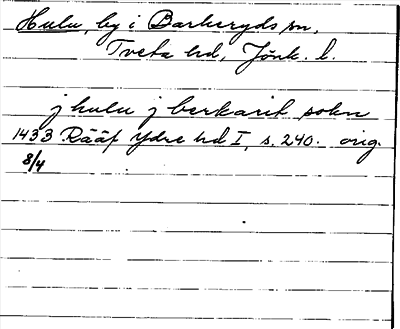 Hulu, by i Barkeryds sn,
Tveta hd, Jönk. l.
j hulu j berkarit sokn
1433 Rääf Ydre hd I, s. 240. orig.
8/4